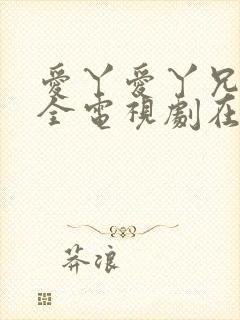 愛丫愛丫兄
全電視劇在
莽浪